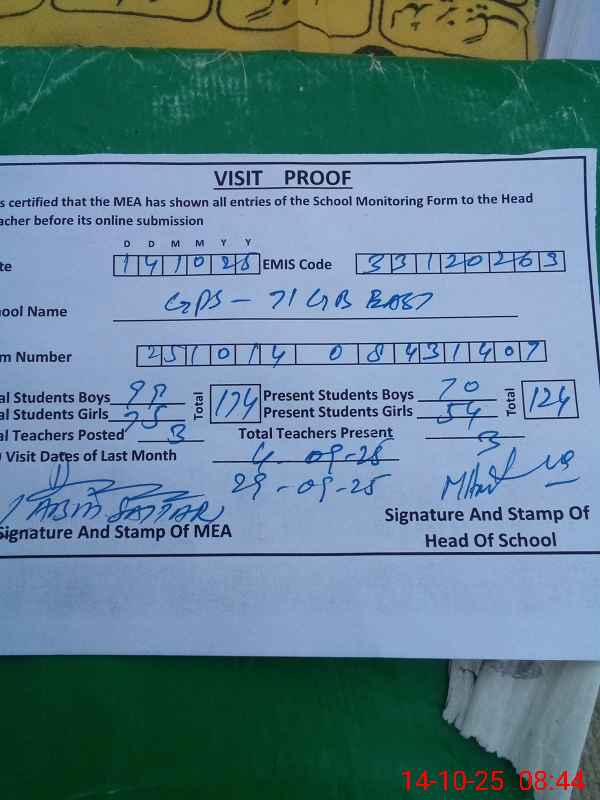 VISIT PROOF
s certified that the MEA has shown all entries of the School Monitoring Form to the Head
acher before its online submission
D D M M Y Y
te 141025 EMIS Code 33120263
ool Name GPS - 71 GB EAST
m Number 251014 08431407
al Students Boys 99 Total 174 Present Students Boys 70 Total 124
al Students Girls 75 Present Students Girls 54
al Teachers Posted 3 Total Teachers Present 3
Visit Dates of Last Month 4-09-25
29-09-25
SATTAR
Signature And Stamp Of MEA
Signature And Stamp Of
Head Of School
14-10-25 08:44